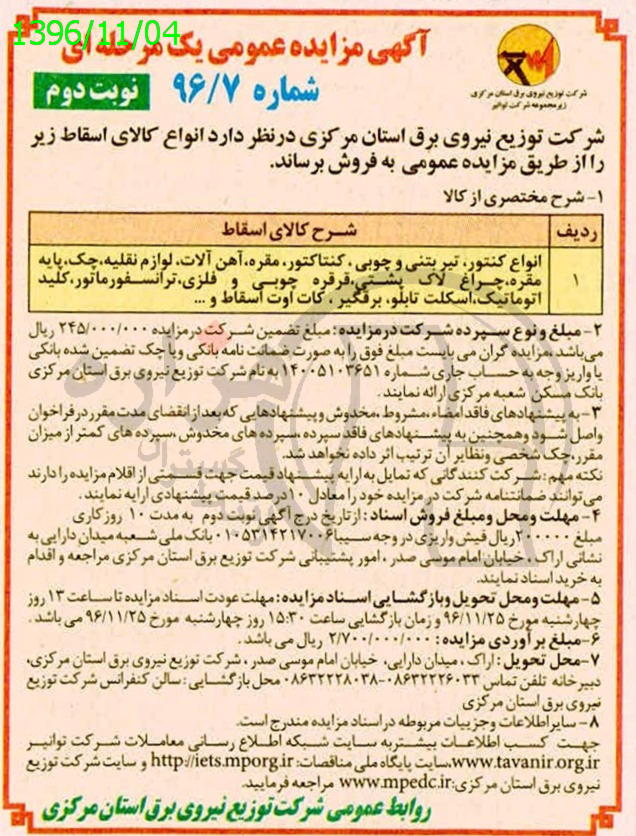 1396/11/04
آگهی مزایده عمومی یک مرحله ای
شماره ۹۶/۷
نوبت دوم
شرکت توزیع نیروی برق استان مرکزی
زیرمجموعه شرکت توانیر
شرکت توزیع نیروی برق استان مرکزی درنظر دارد انواع کالای اسقاط زیر
را از طریق مزایده عمومی به فروش برساند.
۱- شرح مختصری از کالا
ردیف شرح کالای اسقاط
۱ انواع کنتور، تیر بتنی و چوبی، کنتاکتور، مقره، آهن آلات، لوازم نقلیه، جک، پایه
مقره، چراغ لاک پشتی، قرقره چوبی و فلزی، ترانسفورماتور، کلید
اتوماتیک، اسکلت تابلو، برقگیر، کات اوت اسقاط و ...
۲- مبلغ و نوع سپرده شرکت در مزایده: مبلغ تضمین شرکت در مزایده ۲۴۵/۰۰۰/۰۰۰ ریال
می‌باشد، مزایده گران می بایست مبلغ فوق را به صورت ضمانت نامه بانکی ویا چک تضمین شده بانکی
یا واریز وجه به حساب جاری شماره ۱۴۰۰۵۱۰۳۶۵۱ به نام شرکت توزیع نیروی برق استان مرکزی
بانک مسکن شعبه مرکزی ارائه نمایند.
۳- به پیشنهادهای فاقد امضاء، مشروط، مخدوش و پیشنهادهایی که بعد از انقضای مدت مقرر در فراخوان
واصل شود و همچنین به پیشنهادهای فاقد سپرده، سپرده های مخدوش، سپرده های کمتر از میزان
مقرر، چک شخصی ونظایر آن ترتیب اثر داده نخواهد شد.
نکته مهم: شرکت کنندگانی که تمایل به ارایه پیشنهاد قیمت جهت قسمتی از اقلام مزایده را دارند
می‌توانند ضمانتنامه شرکت در مزایده خود را معادل ۱۰ درصد قیمت پیشنهادی ارایه نمایند.
۴- مهلت و محل و مبلغ فروش اسناد: از تاریخ درج آگهی نوبت دوم به مدت ۱۰ روز کاری
مبلغ ۲۰۰۰۰۰ ریال فیش واریزی در وجه سیبا ۰۱۰۵۳۱۴۲۱۷۰۰۶ بانک ملی شعبه میدان دارایی به
نشانی اراک، خیابان امام موسی صدر، امور پشتیبانی شرکت توزیع برق استان مرکزی مراجعه و اقدام
به خرید اسناد نمایند.
۵- مهلت و محل تحویل و بازگشایی اسناد مزایده: مهلت عودت اسناد مزایده تا ساعت ۱۳ روز
چهارشنبه مورخ ۹۶/۱۱/۲۵ و زمان بازگشایی ساعت ۱۵:۳۰ روز چهارشنبه مورخ ۹۶/۱۱/۲۵ می باشد.
۶- مبلغ برآوردی مزایده: ۲/۷۰۰/۰۰۰/۰۰۰ ریال می باشد.
۷- محل تحویل: اراک، میدان دارایی، خیابان امام موسی صدر، شرکت توزیع نیروی برق استان مرکزی،
دبیرخانه تلفن تماس ۰۸۶۳۲۲۲۶۰۳۳-۰۸۶۳۲۲۲۸۰۳۸ محل بازگشایی: سالن کنفرانس شرکت توزیع
نیروی برق استان مرکزی
۸- سایر اطلاعات وجزییات مربوطه در اسناد مزایده مندرج است.
جهت کسب اطلاعات بیشتر به سایت شبکه اطلاع رسانی معاملات شرکت توانیر
www.tavanir.org.ir، سایت پایگاه ملی مناقصات: http://iets.mporg.ir و سایت شرکت توزیع
نیروی برق استان مرکزی: www.mpedc.ir مراجعه فرمایید.
روابط عمومی شرکت توزیع نیروی برق استان مرکزی